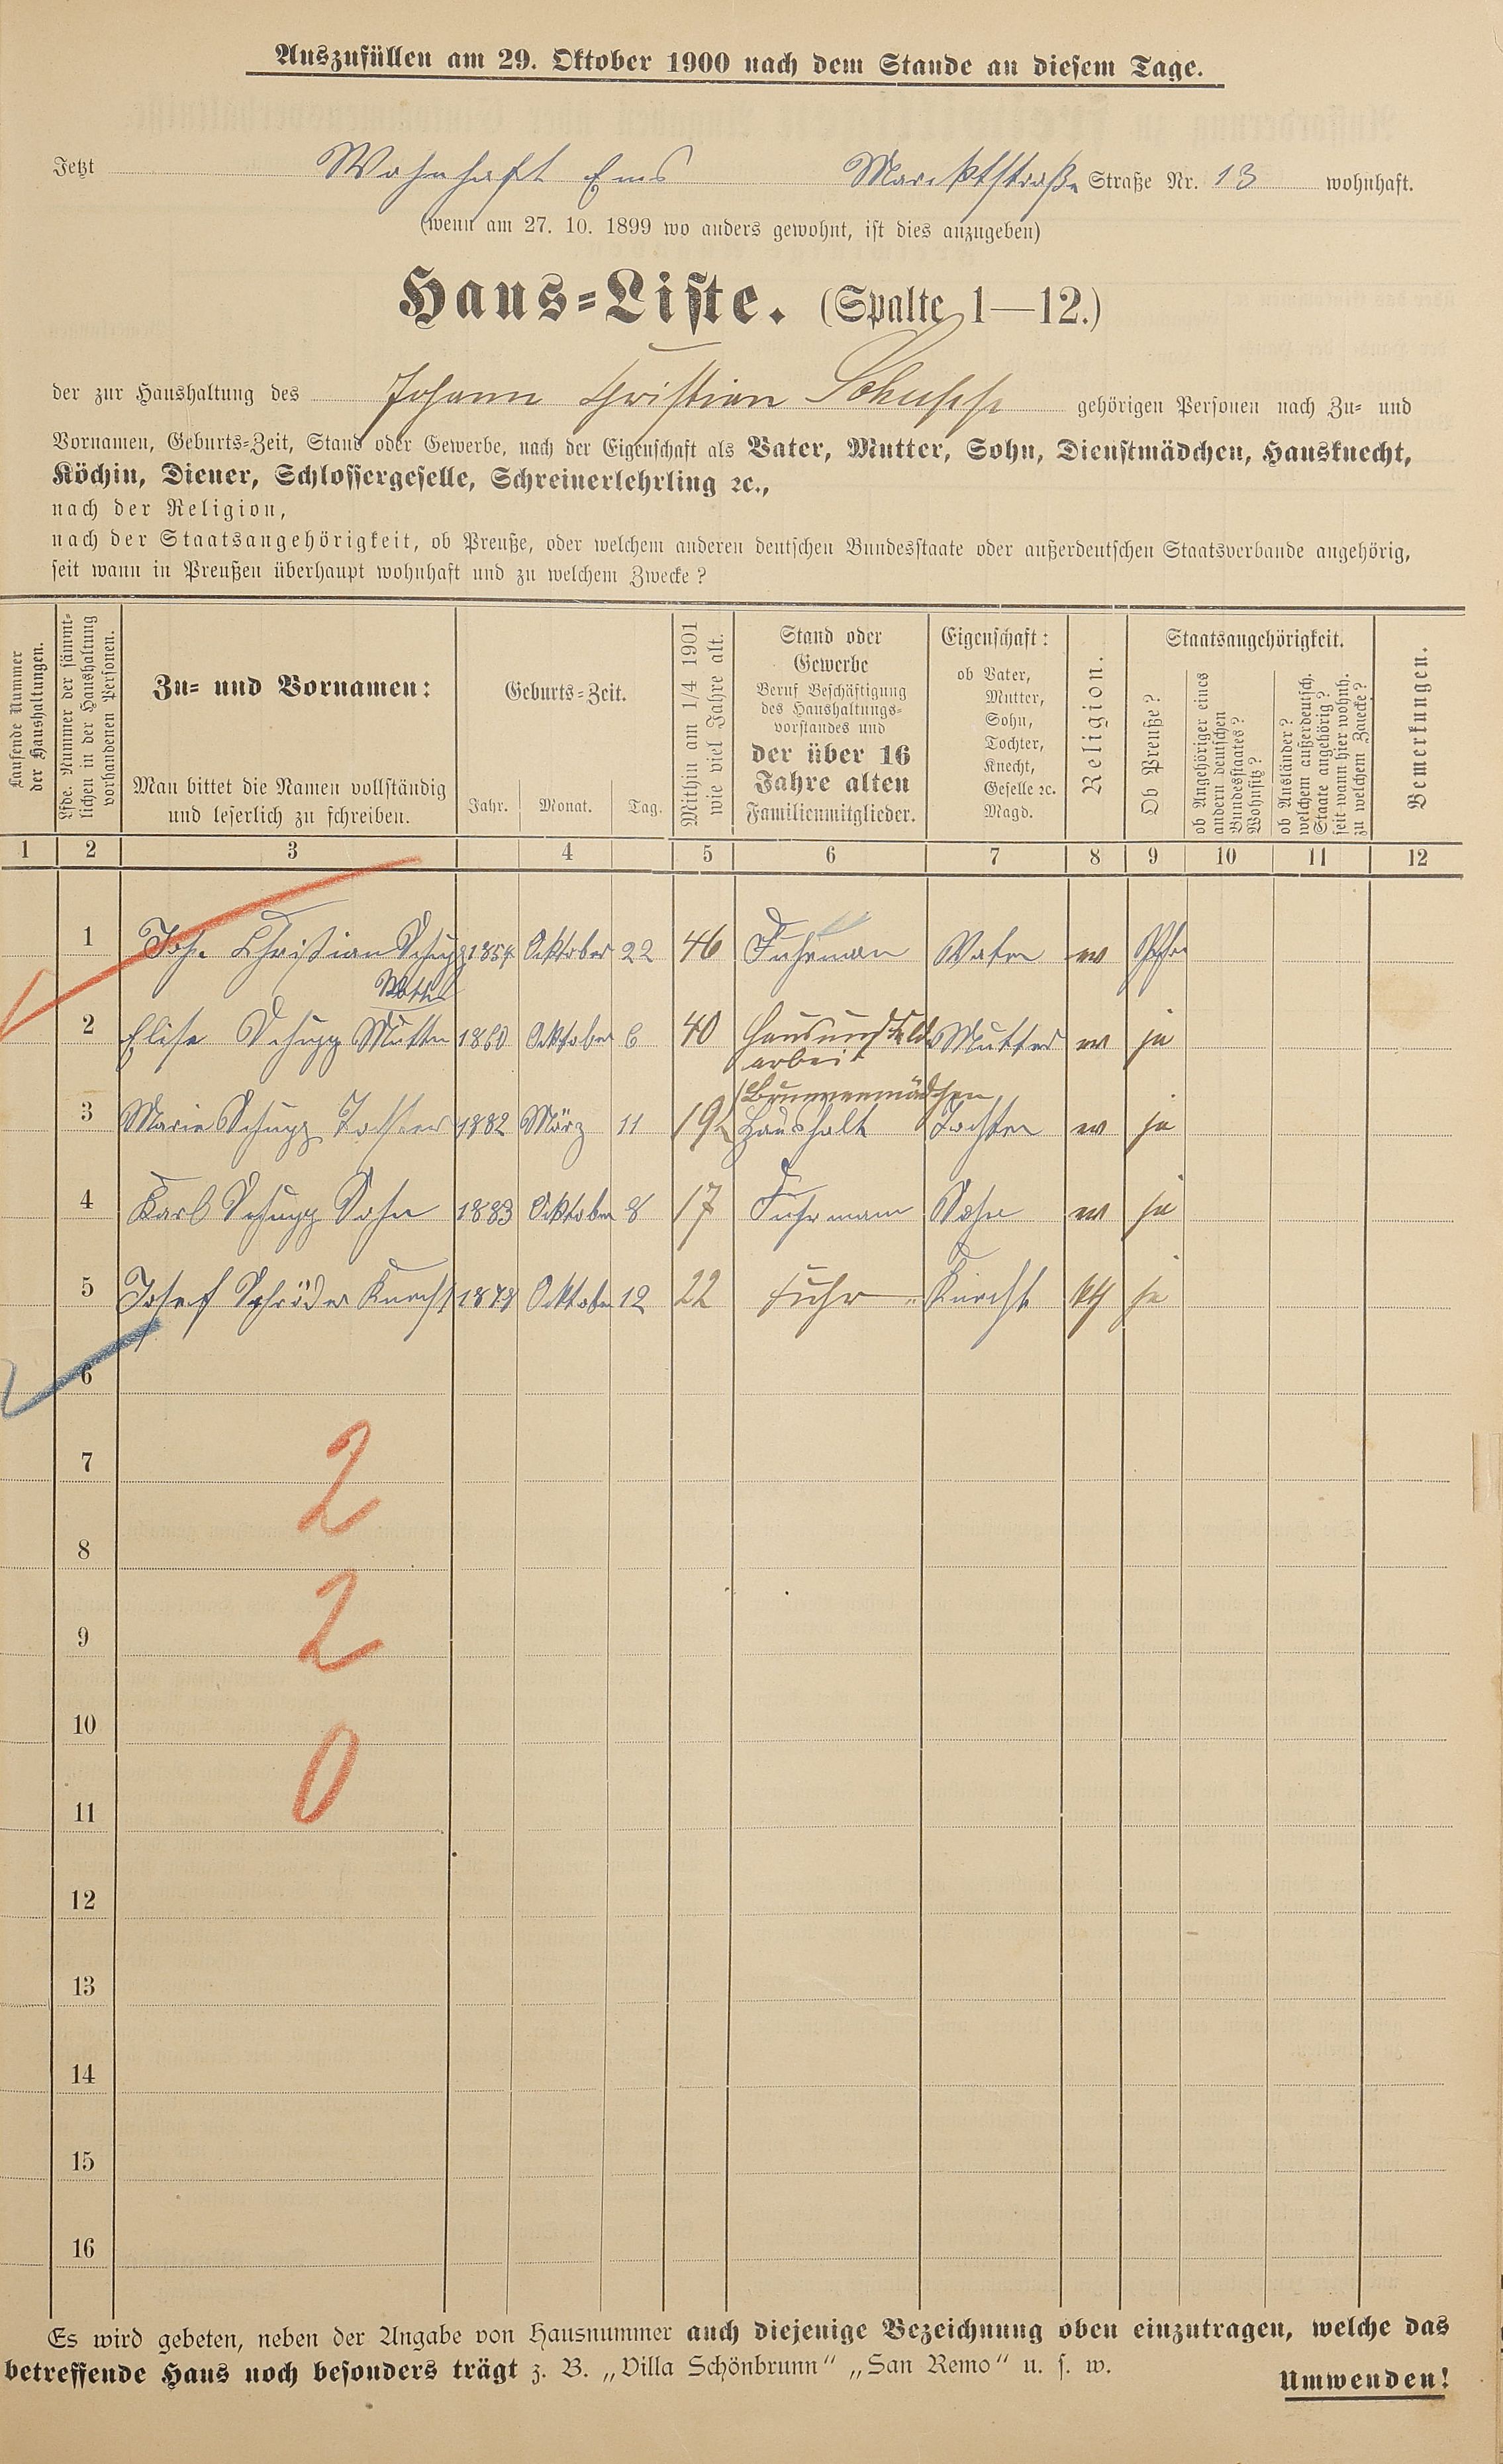 Auszufüllen am 29. Oktober 1900 nach dem Stande an diesem Tage.
Jetzt Wohnhaft Ems Marcktstraße Straße Nr. 13 wohnhaft.
(wenn am 27. 10. 1899 wo anders gewohnt, ist dies anzugeben)
Haus=Liste. (Spalte 1—12.)
der zur Haushaltung des Johann Christian Schupp gehörigen Personen nach Zu= und
Vornamen, Geburts=Zeit, Stand oder Gewerbe, nach der Eigenschaft als Vater, Mutter, Sohn, Dienstmädchen, Hausknecht,
Köchin, Diener, Schlossergeselle, Schreinerlehrling ꝛc.,
nach der Religion,
nach der Staatsangehörigkeit, ob Preuße, oder welchem anderen deutschen Bundesstaate oder außerdeutschen Staatsverbande angehörig,
seit wann in Preußen überhaupt wohnhaft und zu welchem Zwecke?
Laufende Nummer
der Haushaltungen.
Lfde. Nummer der sämmt-
lichen in der Haushaltung
vorhandenen Personen.
Zu= und Vornamen:
Man bittet die Namen vollständig
und leserlich zu schreiben.
Geburts=Zeit.
Jahr. Monat. Tag.
Mithin am 1/4 1901
wie viel Jahre alt.
Stand oder
Gewerbe
Beruf Beschäftigung
des Haushaltungs=
vorstandes und
der über 16
Jahre alten
Familienmitglieder.
Eigenschaft:
ob Vater,
Mutter,
Sohn,
Tochter,
Knecht,
Geselle ꝛc.
Magd.
Religion.
Staatsangehörigkeit.
Ob Preuße?
ob Angehöriger eines
andern deutschen
Bundesstaates?
Wohnsitz?
ob Ausländer?
welchem außerdeutsch.
Staate angehörig?
seit wann hier wohnh.
zu welchem Zwecke?
Bemerkungen.
1 2 3 4 5 6 7 8 9 10 11 12
1 Joh. Christian Schupp 1854 Oktober 22 46 Fuhrman Vater ev
2 Elise Schupp Mutter 1860 Oktober 6 40 Haus und Feld Mutter ev ja
arbeit
Brunnenmädchen
3 Marie Schupp Tochter 1882 März 11 19 Haushalt Tochter ev ja
4 Karl Schupp Sohn 1883 Oktober 8 17 Fuhrmann Sohn ev ja
5 Josef Schröder Knecht 1878 Oktober 12 22 Fuhr „ Knecht kth ja
6
7
2
8
9
2
10
0
11
12
13
14
15
16
Es wird gebeten, neben der Angabe von Hausnummer auch diejenige Bezeichnung oben einzutragen, welche das
betreffende Haus noch besonders trägt z. B. „Villa Schönbrunn“ „San Remo“ u. s. w.
Umwenden!